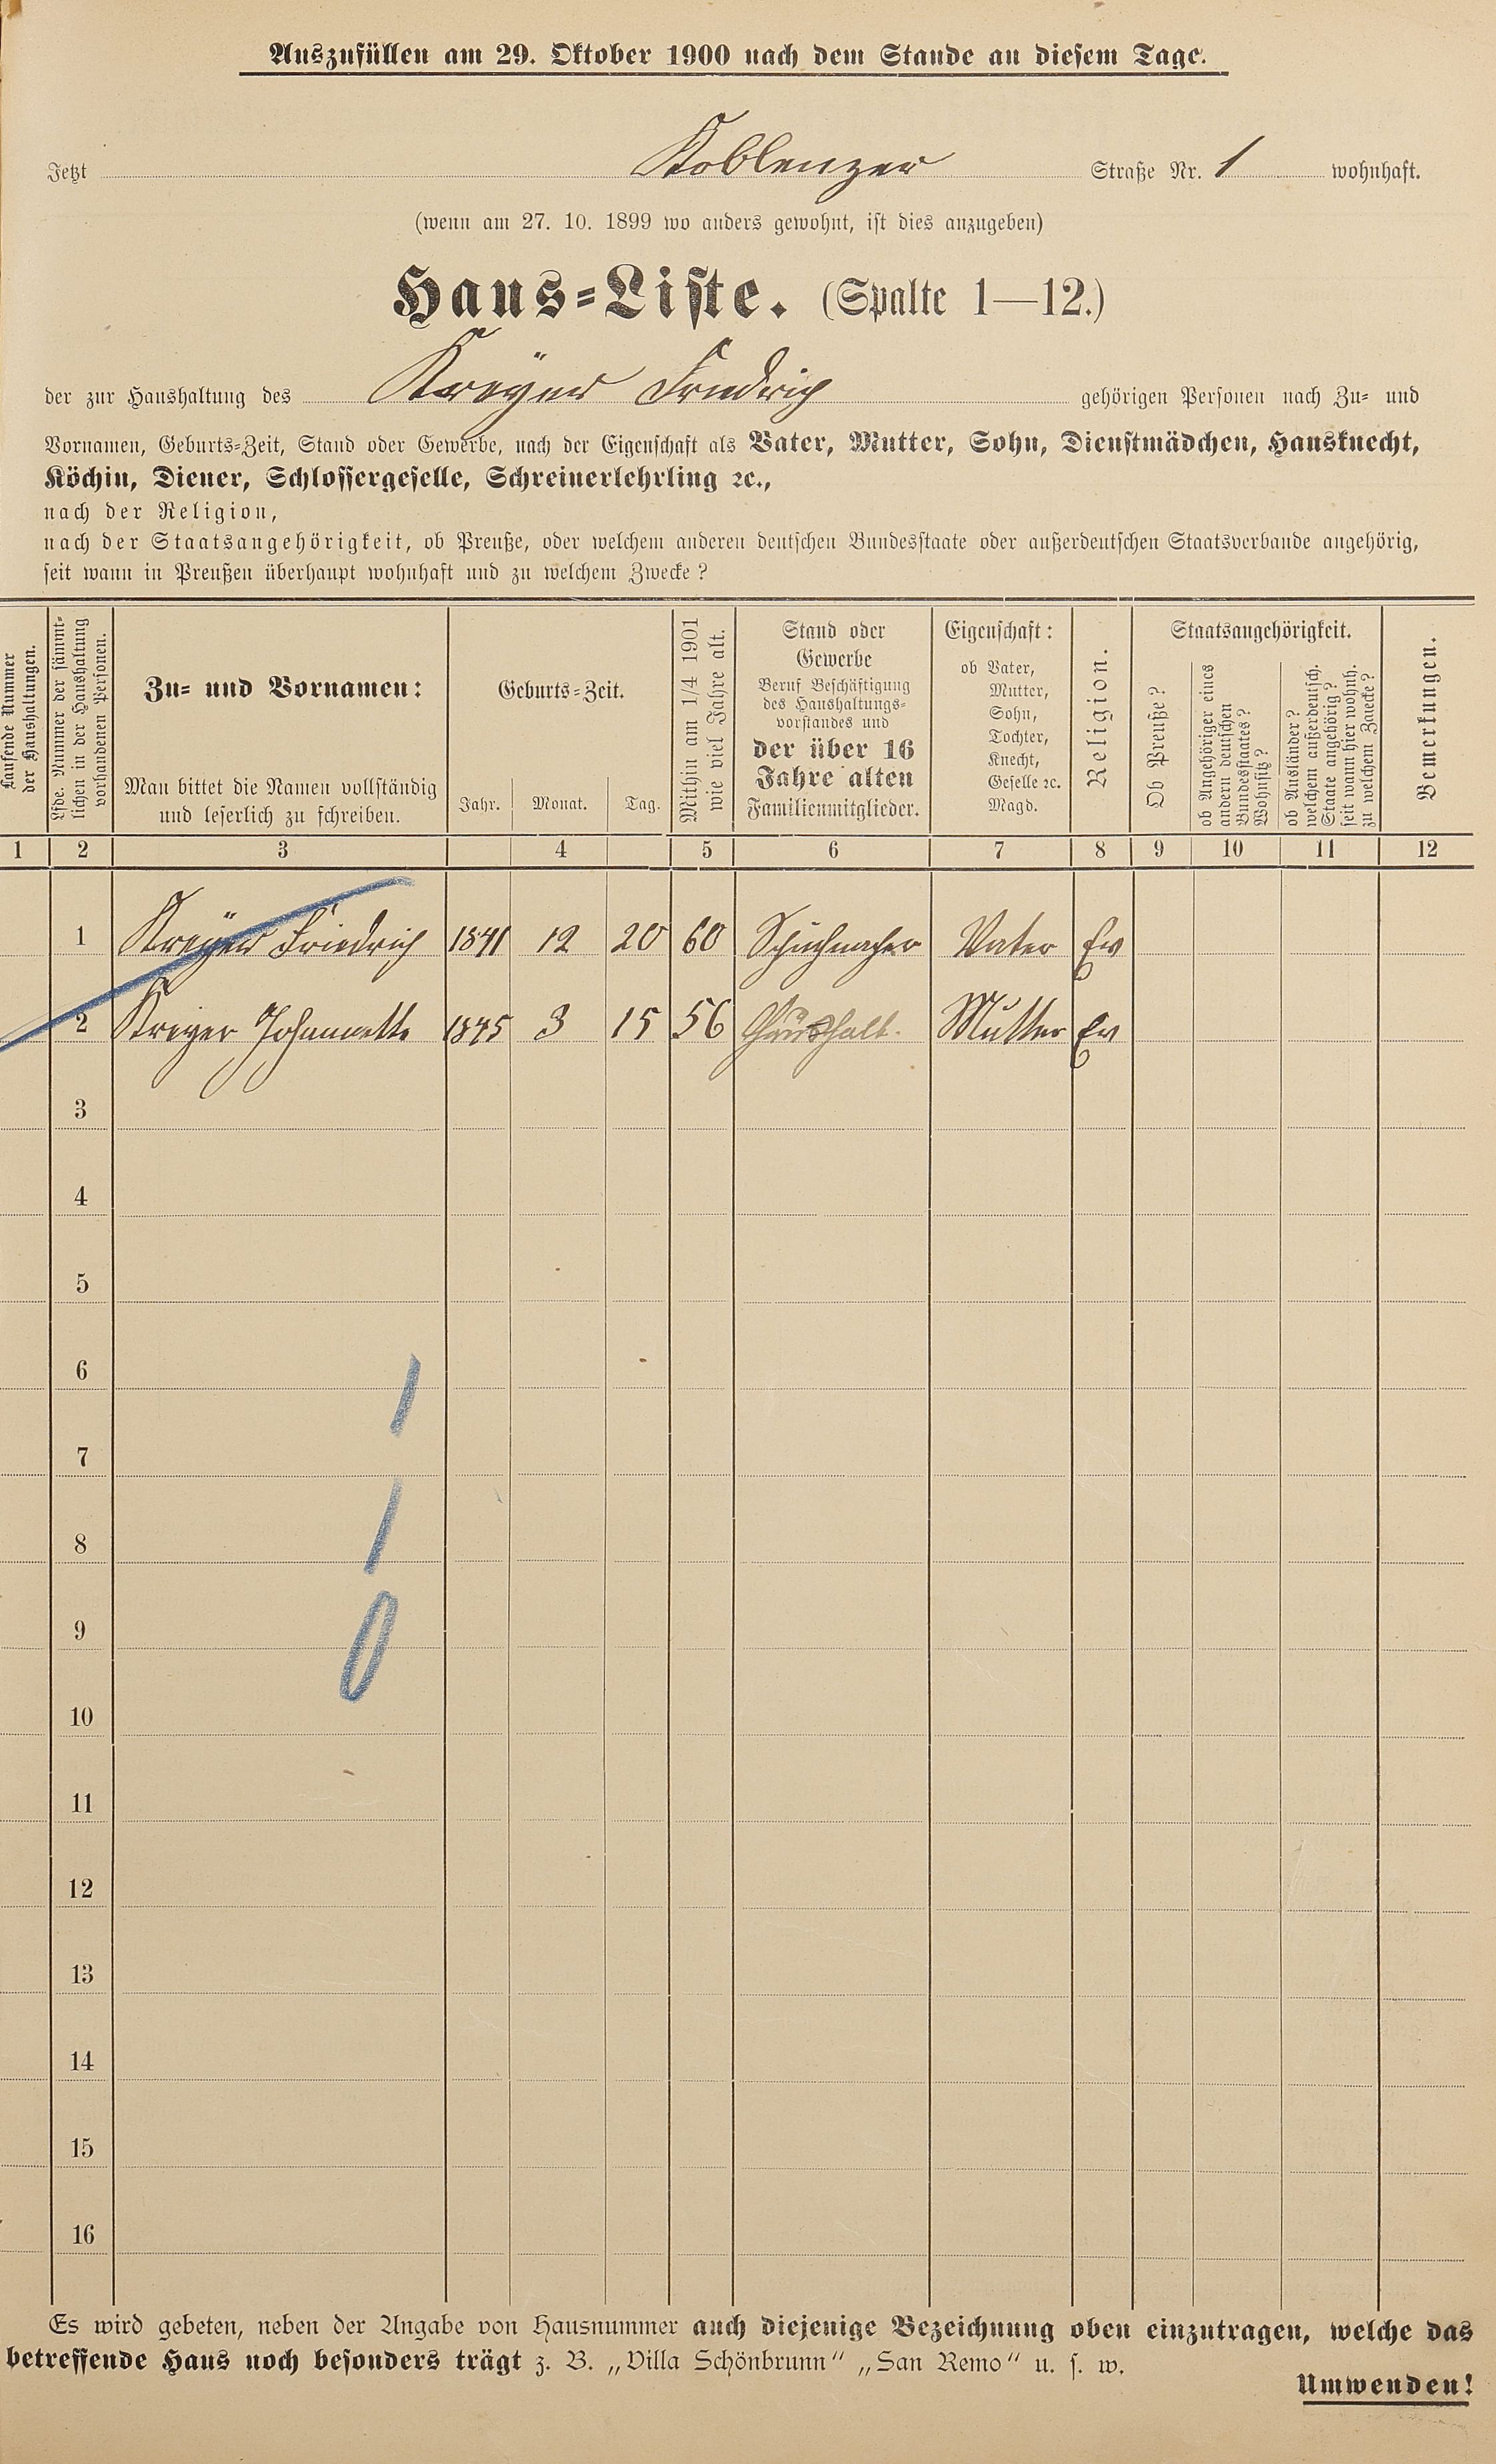 Auszufüllen am 29. Oktober 1900 nach dem Stande an diesem Tage.
Jetzt Koblenzer Straße Nr. 1 wohnhaft.
(wenn am 27. 10. 1899 wo anders gewohnt, ist dies anzugeben)
Haus-Liste. (Spalte 1—12.)
der zur Haushaltung des Kreÿer Friedrich gehörigen Personen nach Zu- und
Vornamen, Geburts-Zeit, Stand oder Gewerbe, nach der Eigenschaft als Vater, Mutter, Sohn, Dienstmädchen, Hausknecht,
Köchin, Diener, Schlossergeselle, Schreinerlehrling ꝛc.,
nach der Religion,
nach der Staatsangehörigkeit, ob Preuße, oder welchem anderen deutschen Bundesstaate oder außerdeutschen Staatsverbande angehörig,
seit wann in Preußen überhaupt wohnhaft und zu welchem Zwecke?
Laufende Nummer
der Haushaltungen.
Lfde. Nummer der sämmt-
lichen in der Haushaltung
vorhandenen Personen.
Zu- und Vornamen:
Man bittet die Namen vollständig
und leserlich zu schreiben.
Geburts-Zeit.
Jahr. Monat. Tag.
Mithin am 1/4 1901
wie viel Jahre alt.
Stand oder
Gewerbe
Beruf Beschäftigung
des Haushaltungs-
vorstandes und
der über 16
Jahre alten
Familienmitglieder.
Eigenschaft:
ob Vater,
Mutter,
Sohn,
Tochter,
Knecht,
Geselle ꝛc.
Magd.
Religion.
Staatsangehörigkeit.
Ob Preuße?
ob Angehöriger eines
andern deutschen
Bundesstaates?
Wohnsitz?
ob Ausländer?
welchem außerdeutsch.
Staate angehörig?
seit wann hier wohnh.
zu welchem Zwecke?
Bemerkungen.
1 2 3 4 5 6 7 8 9 10 11 12
1 Kreÿer Friedrich 1841 12 20 60 Schuhmacher Vater Ev
2 Kreyer Johannette 1845 3 15 56 Haushalt. Mutter Ev
3
4
5
6
7
8
9
10
11
12
13
14
15
16
Es wird gebeten, neben der Angabe von Hausnummer auch diejenige Bezeichnung oben einzutragen, welche das
betreffende Haus noch besonders trägt z. B. „Villa Schönbrunn“ „San Remo“ u. s. w.
Umwenden!